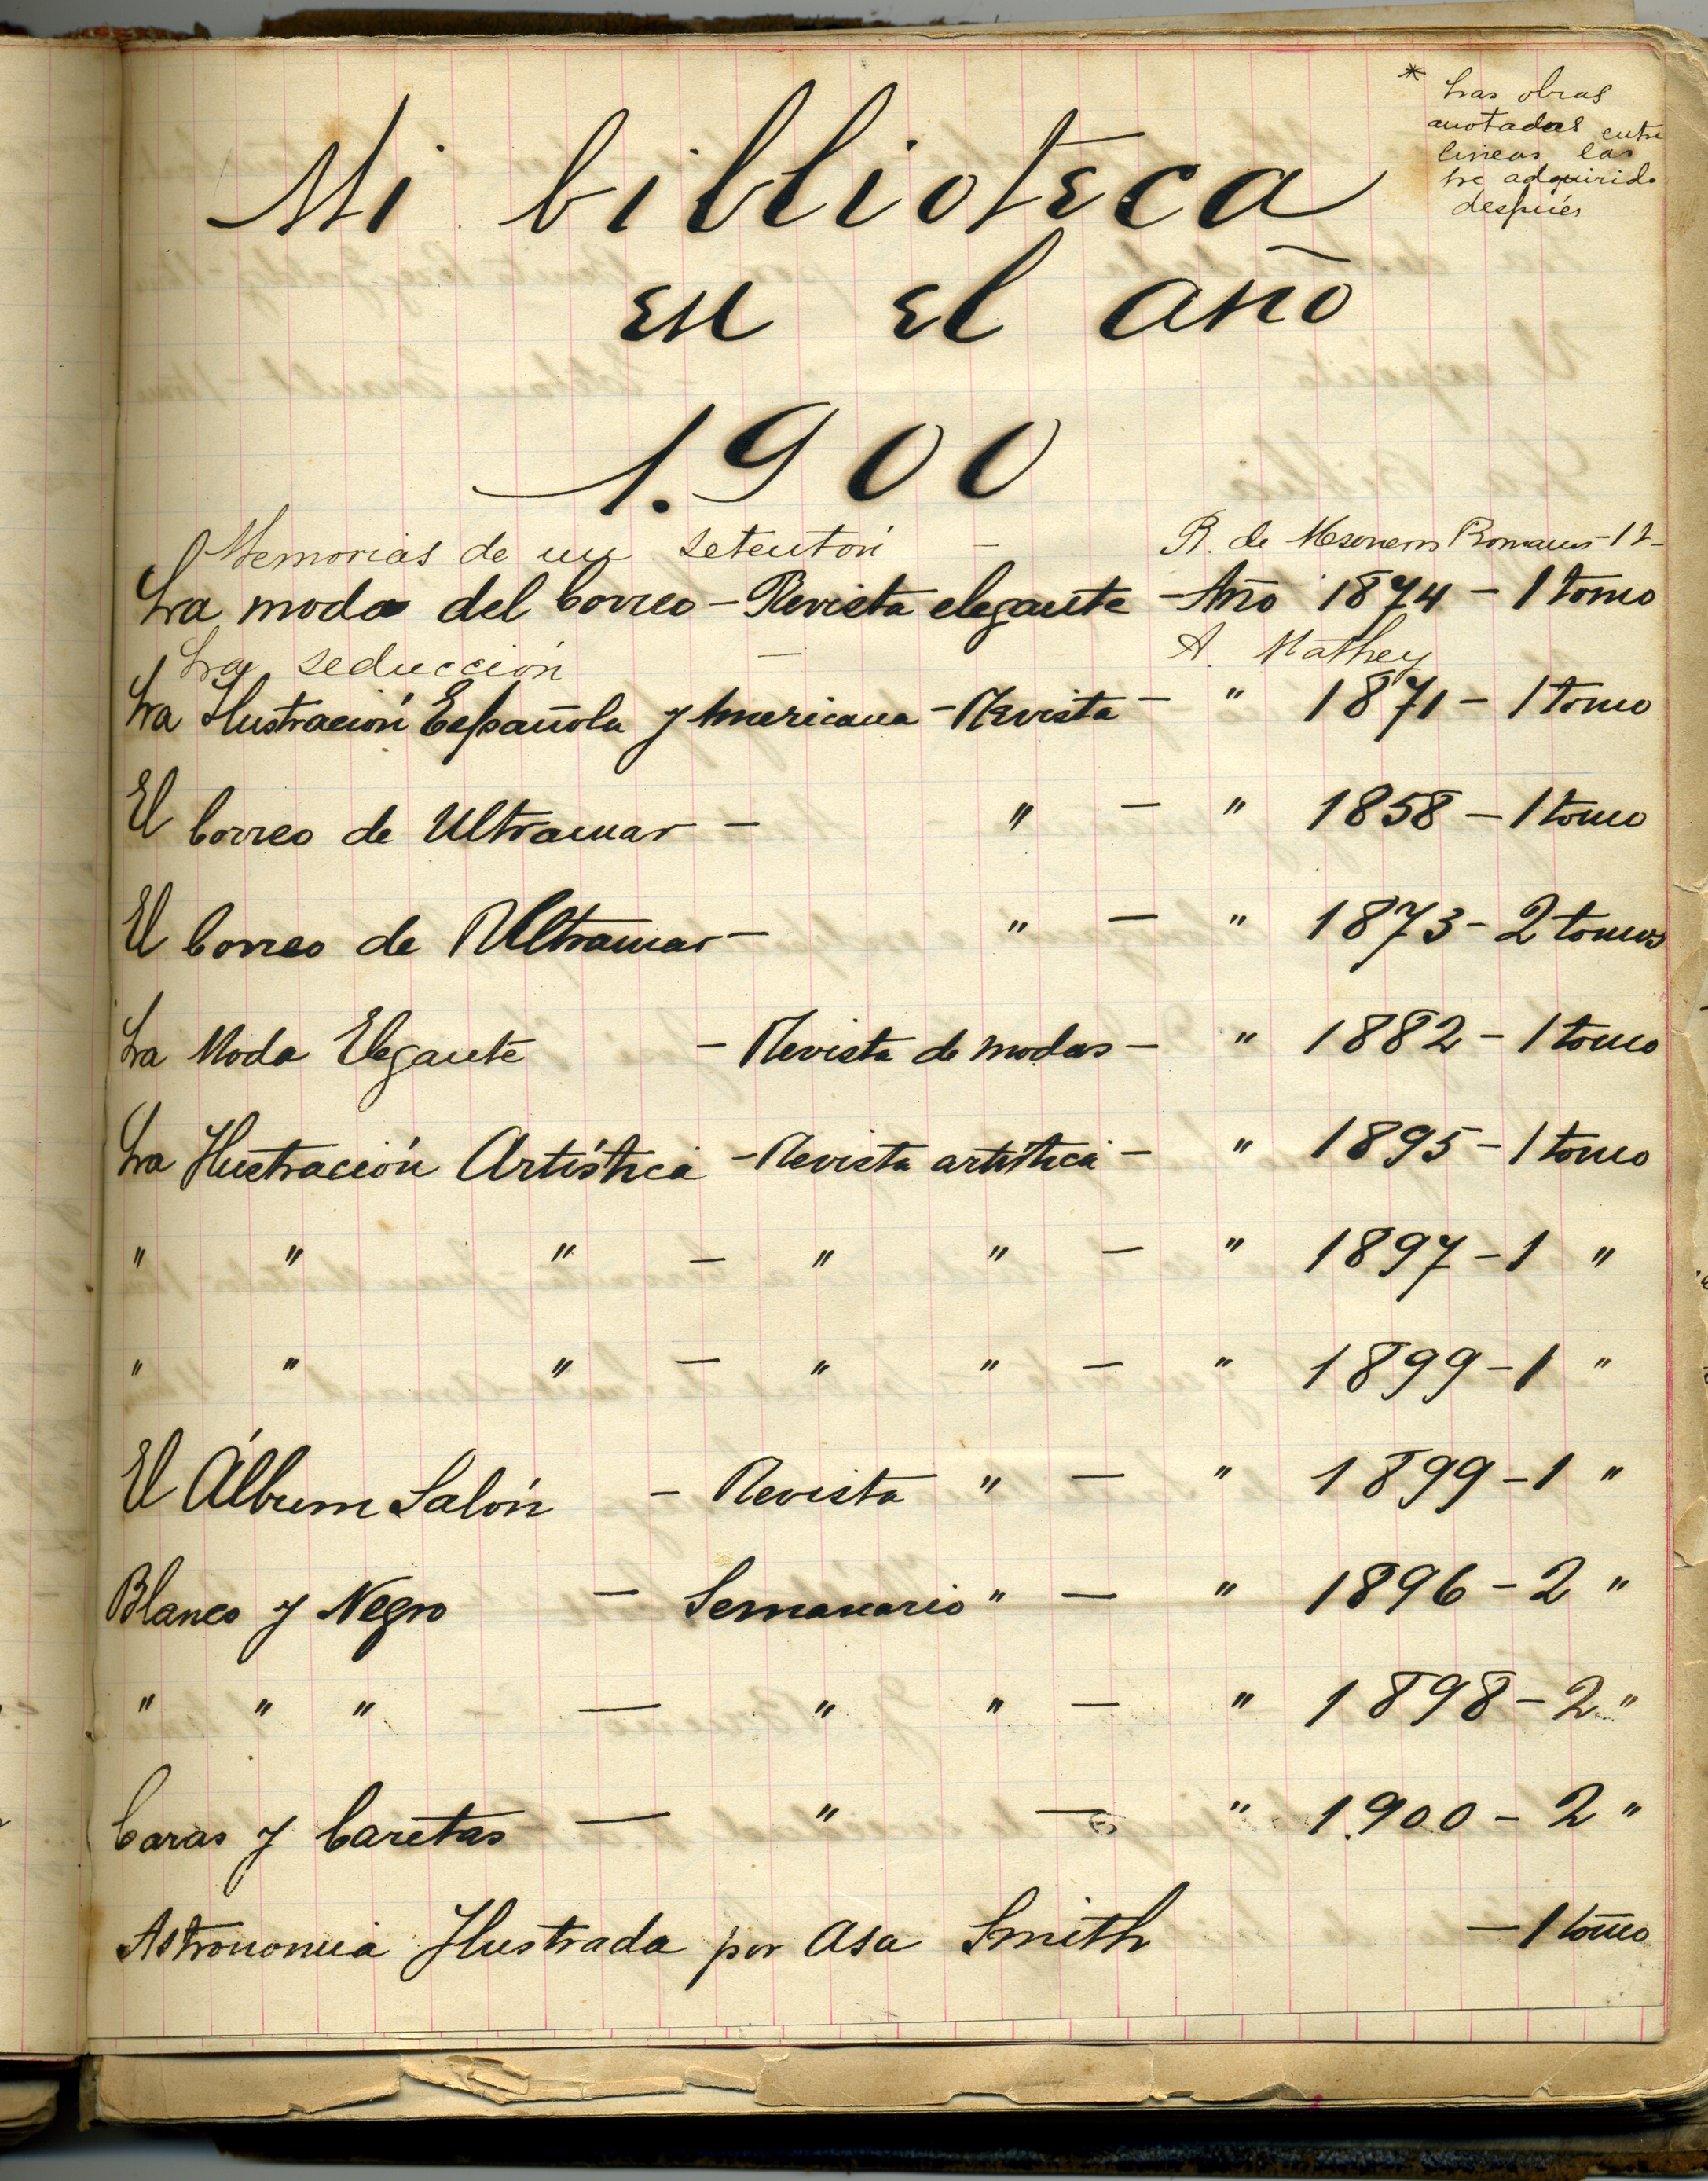 * Las obras
anotadas entre
lineas las
he adquirido
después
Mi biblioteca
en el año
1.900
Memorias de un setentón — R. de Mesonero Romanos - 1 t-
La moda del Correo - Revista elegante - Año 1874 - 1 tomo
La seducción — A. Mathey
La Ilustración Española y Americana - Revista - " 1871 - 1 tomo
El Correo de Ultramar - " - " 1858 - 1 tomo
El Correo de Ultramar - " - " 1873 - 2 tomos
La Moda Elegante - Revista de modas - " 1882 - 1 tomo
La Ilustración Artística - Revista artística - " 1895 - 1 tomo
" " " - " " - " 1897 - 1 "
" " " - " " - " 1899 - 1 "
El Álbum Salón - Revista " - " 1899 - 1 "
Blanco y Negro - Semanario " - " 1896 - 2 "
" " " - " " - " 1898 - 2 "
Caras y Caretas - " - " 1.900 - 2 "
Astronomia Ilustrada por Asa Smith - 1 tomo